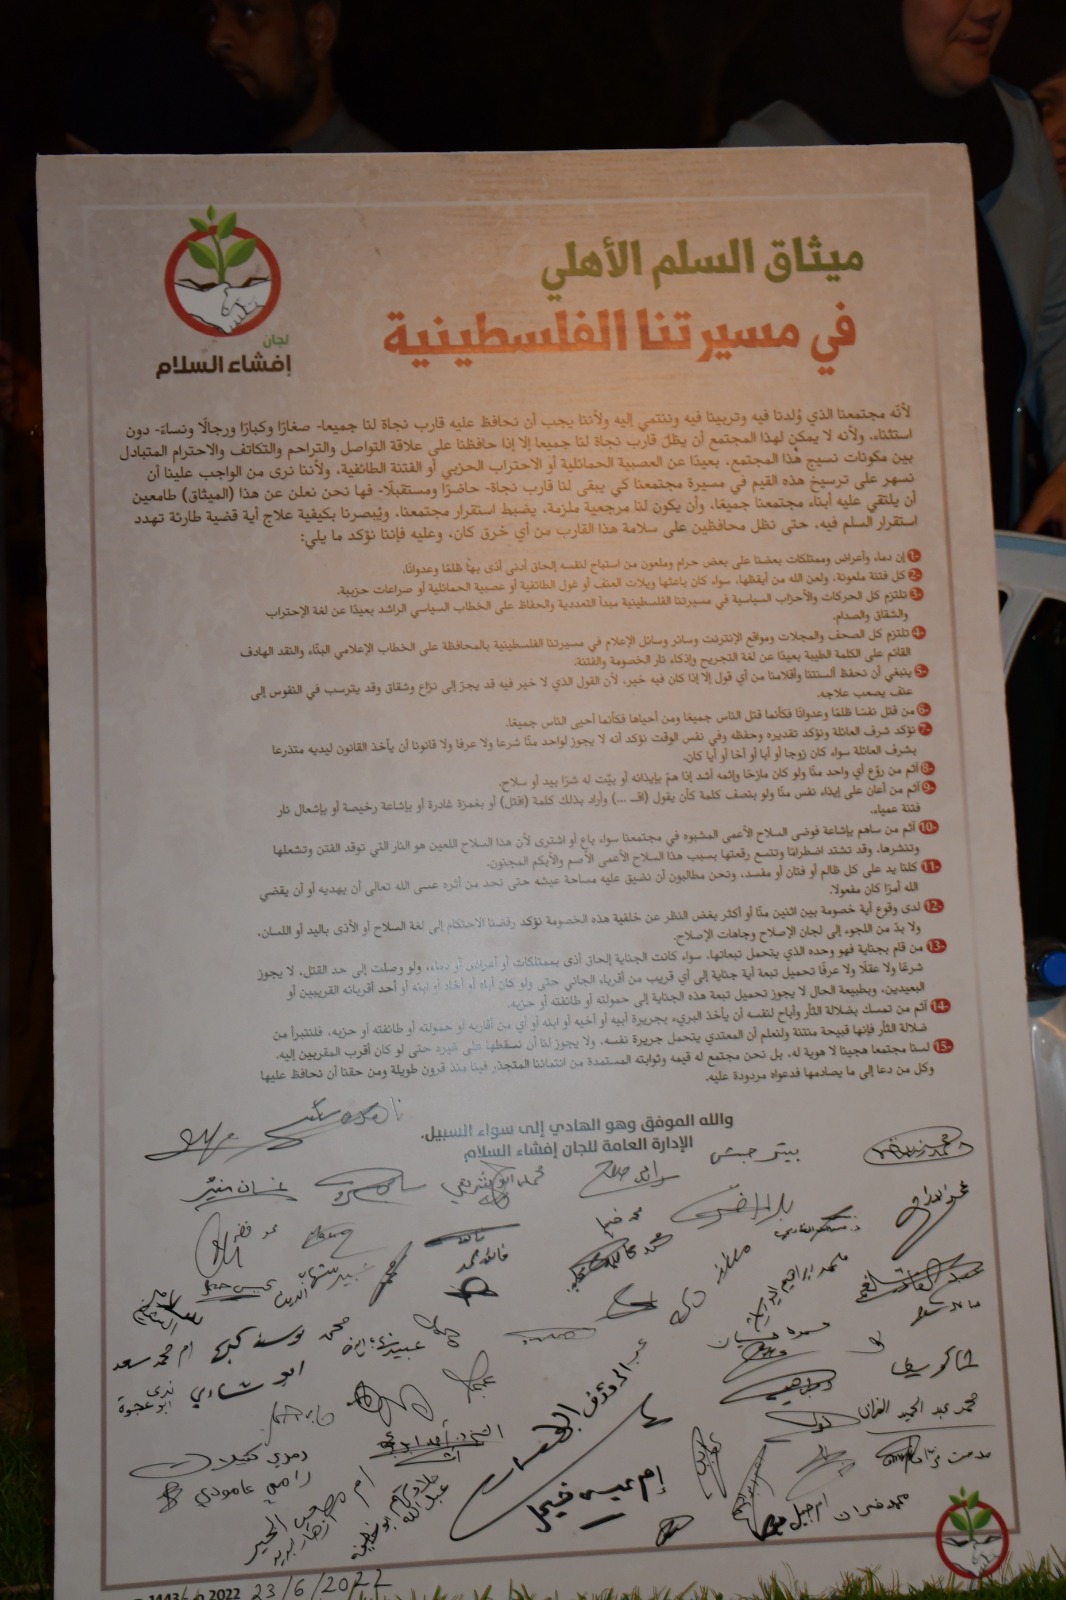 ميثاق السلم الأهلي
في مسيرتنا الفلسطينية
لجان
إفشاء السلام
لأنّه مجتمعنا الذي وُلدنا فيه وتربينا فيه وننتمي إليه ولأننا يجب أن نحافظ عليه قارب نجاة لنا جميعا- صغارًا وكبارًا ورجالًا ونساءً- دون
استثناء، ولأنه لا يمكن لهذا المجتمع أن يظلّ قارب نجاة لنا جميعا إلا إذا حافظنا على علاقة التواصل والتراحم والتكاتف والاحترام المتبادل
بين مكونات نسيج هذا المجتمع، بعيدًا عن العصبية الحمائلية أو الاحتراب الحزبي أو الفتنة الطائفية، ولأننا نرى من الواجب علينا أن
نسهر على ترسيخ هذه القيم في مسيرة مجتمعنا كي يبقى لنا قارب نجاة- حاضرًا ومستقبلًا- فها نحن نعلن عن هذا (الميثاق) طامعين
أن يلتقي عليه أبناء مجتمعنا جميعًا، وأن يكون لنا مرجعية ملزمة، يضبط استقرار مجتمعنا، ويُبصرنا بكيفية علاج أية قضية طارئة تهدد
استقرار السلم فيه، حتى نظل محافظين على سلامة هذا القارب من أي خرق كان، وعليه فإننا نؤكد ما يلي:
1- إن دماء وأعراض وممتلكات بعضنا على بعض حرام وملعون من استباح لنفسه إلحاق أدنى أذى بها ظلمًا وعدوانًا.
2- كل فتنة ملعونة، ولعن الله من أيقظها، سواء كان باعثها ويلات العنف أو غول الطائفية أو عصبية الحمائلية أو صراعات حزبية.
3- تلتزم كل الحركات والأحزاب السياسية في مسيرتنا الفلسطينية مبدأ التعددية والحفاظ على الخطاب السياسي الراشد بعيدًا عن لغة الإحتراب
والشقاق والصدام.
4- تلتزم كل الصحف والمجلات ومواقع الإنترنت وسائر وسائل الإعلام في مسيرتنا الفلسطينية بالمحافظة على الخطاب الإعلامي البنّاء والنقد الهادف
القائم على الكلمة الطيبة بعيدًا عن لغة التجريح وإذكاء نار الخصومة والفتنة.
5- ينبغي أن نحفظ ألسنتنا وأقلامنا من أي قول إلا إذا كان فيه خير، لأن القول الذي لا خير فيه قد يجرّ إلى نزاع وشقاق وقد يترسب في النفوس إلى
عنف يصعب علاجه.
6- من قتل نفسًا ظلمًا وعدوانًا فكأنما قتل الناس جميعًا ومن أحياها فكأنما أحيى الناس جميعًا.
7- نؤكد شرف العائلة ونؤكد تقديره وحفظه وفي نفس الوقت نؤكد أنه لا يجوز لواحد منّا شرعا ولا عرفا ولا قانونا أن يأخذ القانون ليديه متذرعا
بشرف العائلة سواء كان زوجا أو أبا أو أخا أو أيا كان.
8- أثم من روّع أي واحد منّا ولو كان مازحًا وإثمه أشد إذا همّ بإيذائه أو بيّت له شرًا بيد أو سلاح.
9- أثم من أعان على إيذاء نفس منّا ولو بنصف كلمة كأن يقول (اقـ ...) وأراد بذلك كلمة (اقتل) أو بغمزة غادرة أو بإشاعة رخيصة أو بإشعال نار
فتنة عمياء.
10- أثم من ساهم بإشاعة فوضى السلاح الأعمى المشبوه في مجتمعنا سواء باع أو اشترى لأن هذا السلاح اللعين هو النار التي توقد الفتن وتشعلها
وتنشرها، وقد تشتد اضطرامًا وتتسع رقعتها بسبب هذا السلاح الأعمى الأصم والأبكم المجنون.
11- كلنا يد على كل ظالم أو فتّان أو مفسد، ونحن مطالبون أن نضيق عليه مساحة عيشه حتى نحد من أثره عسى الله تعالى أن يهديه أو أن يقضي
الله أمرًا كان مفعولا.
12- لدى وقوع أية خصومة بين اثنين منّا أو أكثر بغض النظر عن خلفية هذه الخصومة نؤكد رفضنا الاحتكام إلى لغة السلاح أو الأذى باليد أو اللسان،
ولا بدّ من اللجوء إلى لجان الإصلاح وجاهات الإصلاح.
13- من قام بجناية فهو وحده الذي يتحمل تبعاتها، سواء كانت الجناية إلحاق أذى بممتلكات أو أعراض أو دماء، ولو وصلت إلى حد القتل، لا يجوز
شرعًا ولا عقلًا ولا عرفًا تحميل تبعة أية جناية إلى أي قريب من أقرباء الجاني حتى ولو كان أباه أو أخاه أو ابنه أو أحد أقربائه القريبين أو
البعيدين، وبطبيعة الحال لا يجوز تحميل تبعة هذه الجناية إلى حمولته أو طائفته أو حزبه.
14- أثم من تمسك بضلالة الثأر وأباح لنفسه أن يأخذ البريء بجريرة أبيه أو أخيه أو ابنه أو أي من أقاربه أو حمولته أو طائفته أو حزبه، فلنتبرأ من
ضلالة الثأر فإنها قبيحة منتنة ولنعلم أن المعتدي يتحمل جريرة نفسه، ولا يجوز لنا أن نسقطها على غيره حتى لو كان أقرب المقربين إليه.
15- لسنا مجتمعا هجينا لا هوية له، بل نحن مجتمع له قيمه وثوابته المستمدة من انتمائنا المتجذر فينا منذ قرون طويلة ومن حقنا أن نحافظ عليها
وكل من دعا إلى ما يصادمها فدعواه مردودة عليه.
والله الموفق وهو الهادي إلى سواء السبيل.
الإدارة العامة للجان إفشاء السلام
بيتر حبش
غسان منير
محمد ابراهيم
ام محمد سعد
يوسف
ابو شادي
ندى
ابو عجوة
عبد الرؤوف
محمد عبد الحميد
رامي عامودي
ام عيسى
ام جبيل
2022 23/6/2022